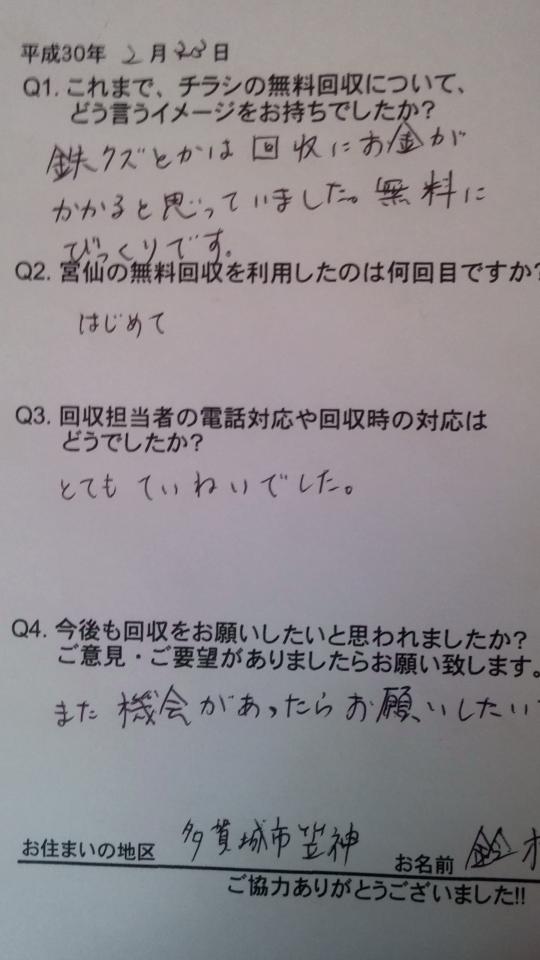 平成30年 2月20日
Q1. これまで、チラシの無料回収について、
どう言うイメージをお持ちでしたか?
鉄クズとかは回収にお金が
かかると思っていました。無料に
びっくりです。
Q2. 宮仙の無料回収を利用したのは何回目ですか?
はじめて
Q3. 回収担当者の電話対応や回収時の対応は
どうでしたか?
とてもていねいでした。
Q4. 今後も回収をお願いしたいと思われましたか?
ご意見・ご要望がありましたらお願い致します。
また機会があったらお願いしたい
お住まいの地区 多賀城市笠神 お名前 鈴木
ご協力ありがとうございました!!